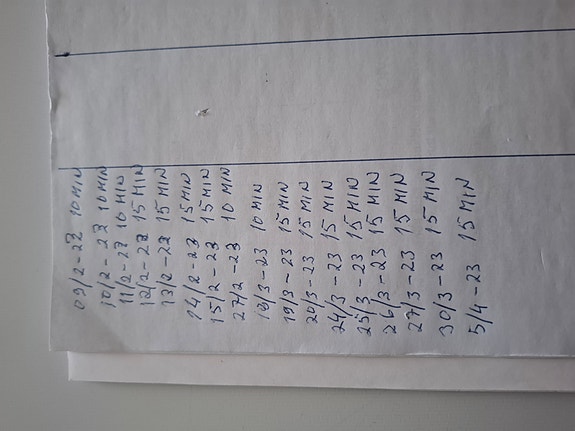 09/2-23 10 MIN
10/2-23 10 MIN
11/2-23 10 MIN
12/2-23 15 MIN
13/2-23 15 MIN
14/2-23 15 MIN
15/2-23 15 MIN
27/2-23 10 MIN
18/3-23 10 MIN
19/3-23 15 MIN
20/3-23 15 MIN
24/3-23 15 MIN
25/3-23 15 MIN
26/3-23 15 MIN
27/3-23 15 MIN
30/3-23 15 MIN
5/4-23 15 MIN